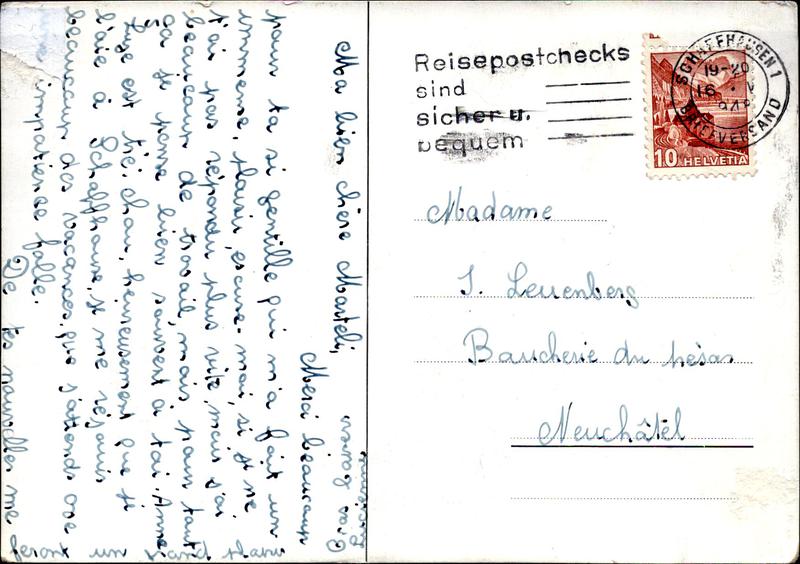 Ma bien chère Marteli,
Merci beaucoup
pour ta si gentille qui m'a fait un
immense plaisir, escuse-moi, si je ne
t'ai pas répondu plus vite, mais j'ai
beaucoup de travail, mais pour tant
ça je pense bien souvent à toi. Anne
Lyse est très chou, heureusement que je
l'aie à Schaffhouse, je me réjouis
beaucoup des vacances, que j'attends avec
impatience folle.
De tes nouvelles me
feront un grand plaisir
Gros baisers
Reisepostchecks
sind
sicher u.
bequem
SCHAFFHAUSEN 1
19-20
16. V
948
BRIEFVERSAND
10 HELVETIA
Madame
J. Leuenberg
Boucherie du
Neuchâtel